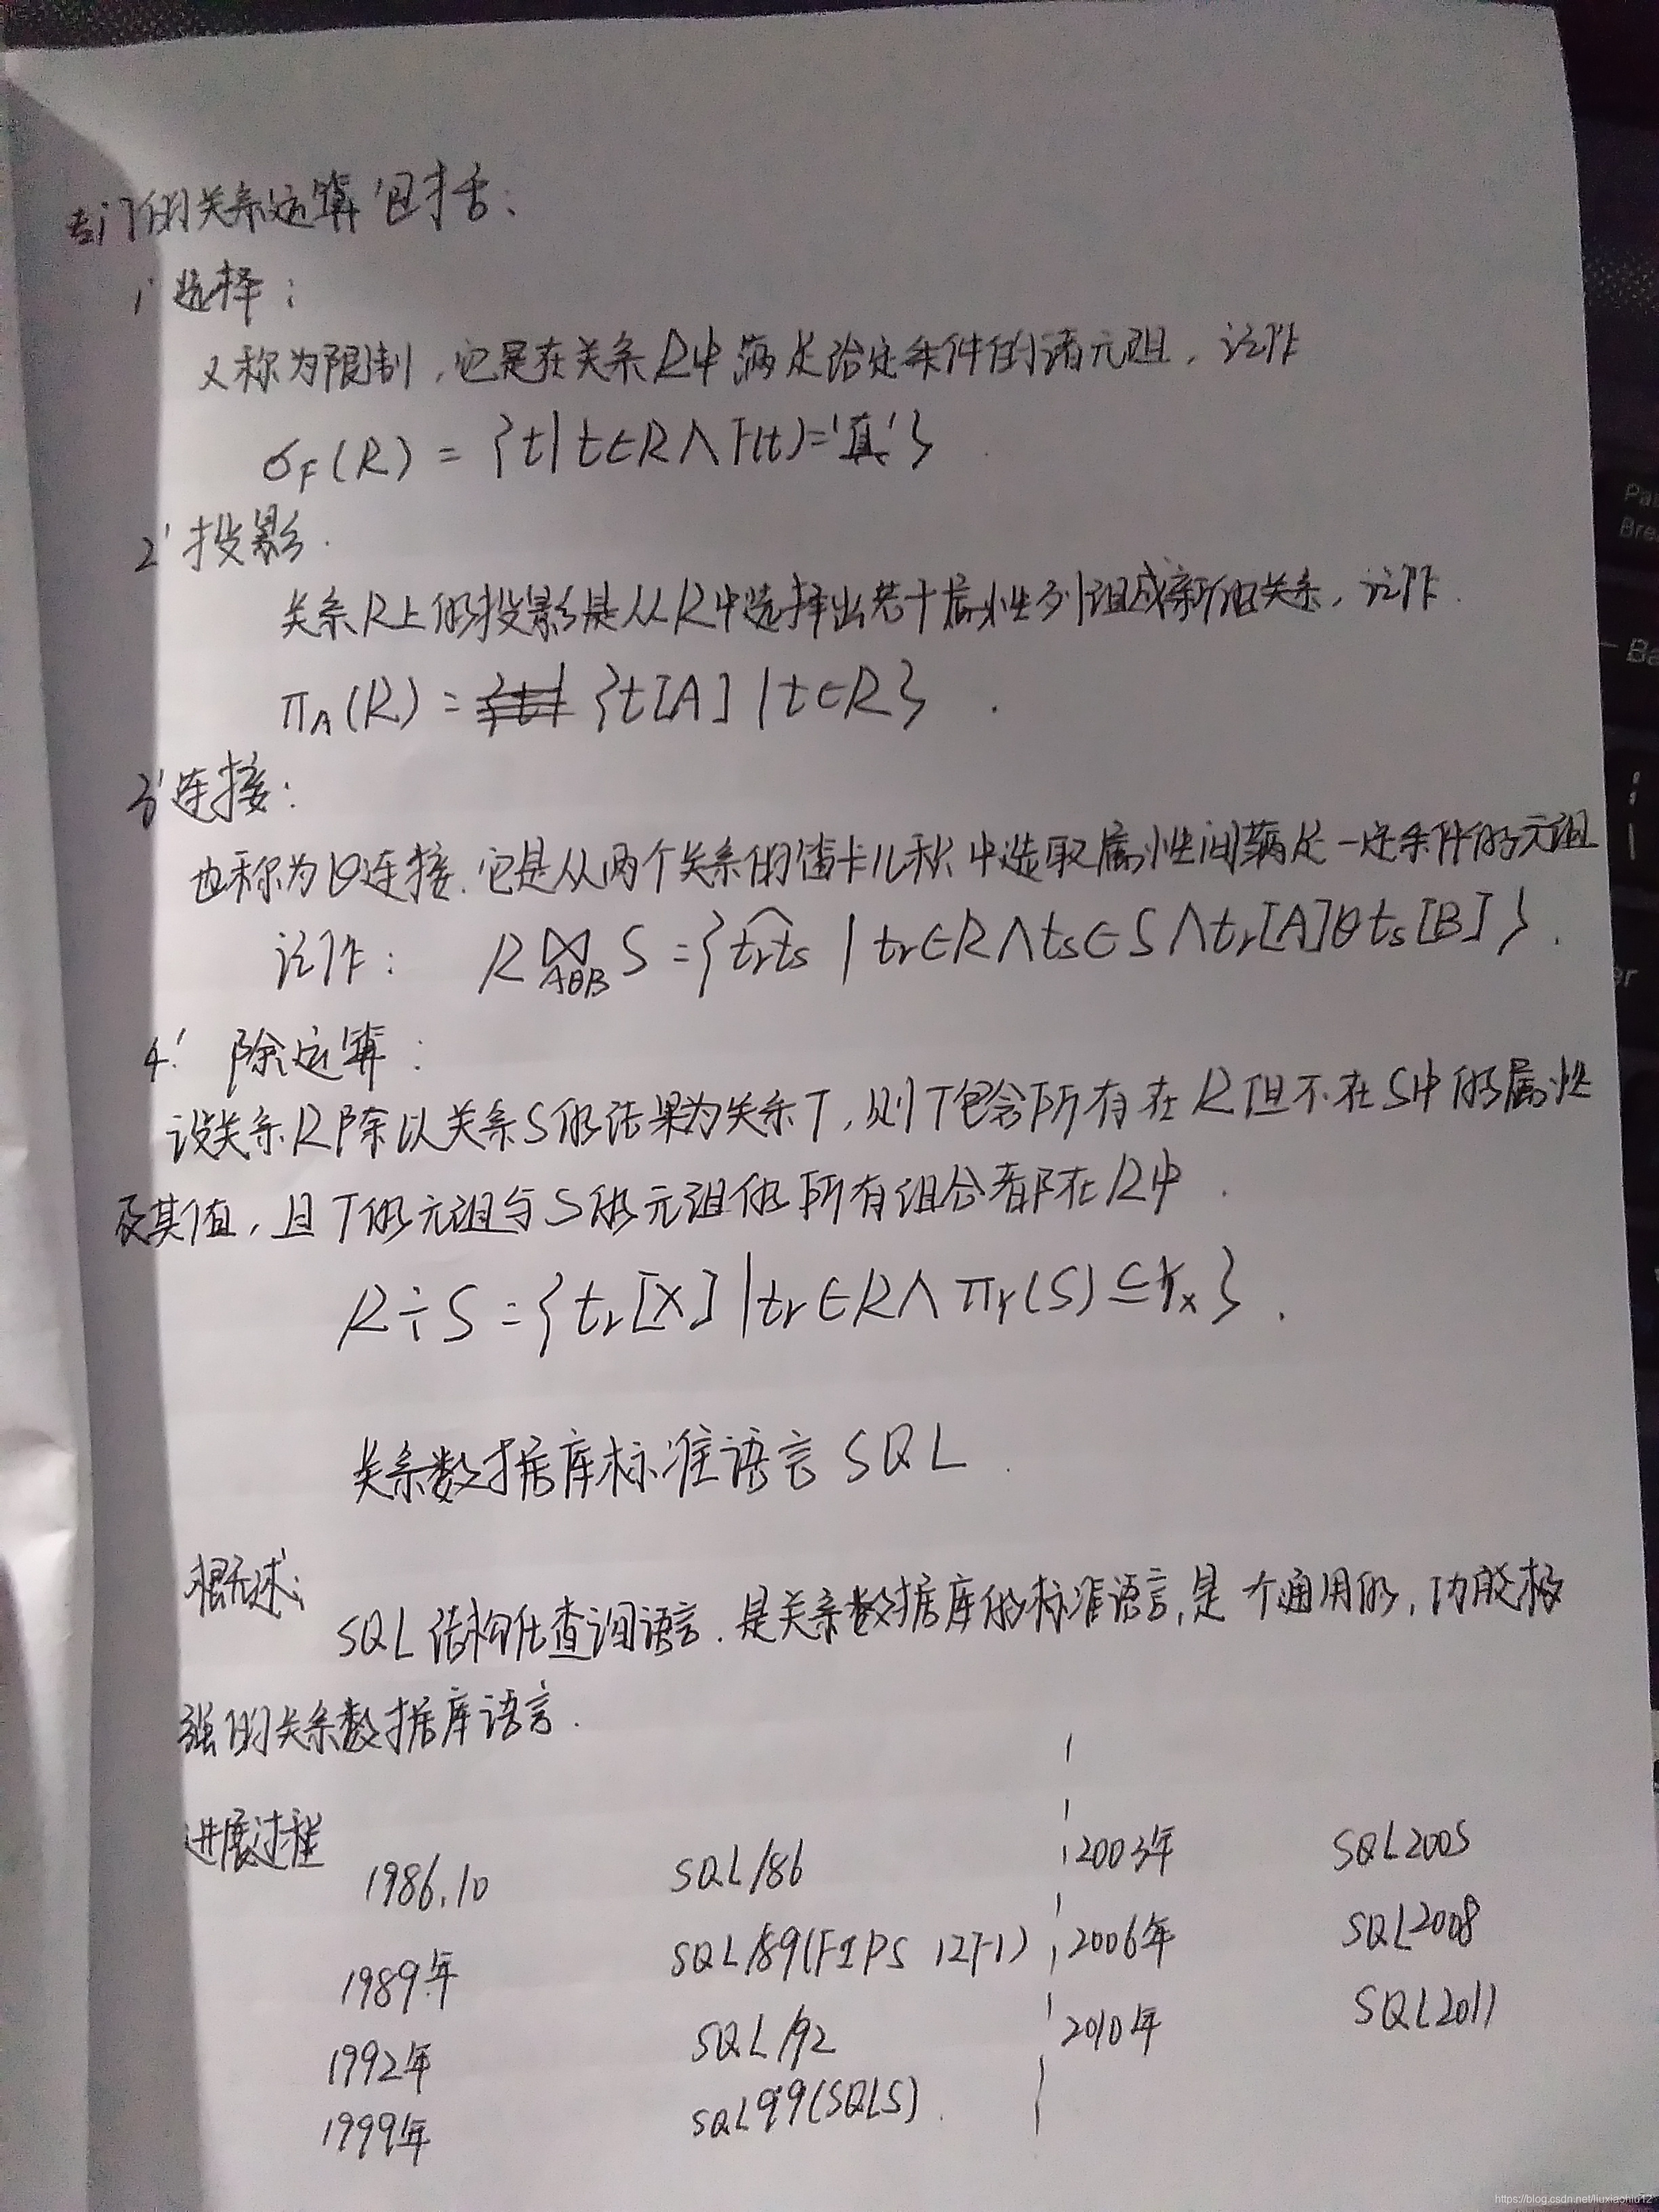 专门的关系运算包括:
1' 选择:
又称为限制,它是在关系R中满足给定条件的诸元组,记作
σF(R) = {t|t∈R∧F(t)='真'}
2' 投影.
关系R上的投影是从R中选择出若干属性列组成新的关系,记作.
πA(R) = {t[A] | t∈R}.
3' 连接:
也称为θ连接.它是从两个关系的笛卡儿积中选取属性间满足一定条件的元组
记作: R⋈S = {t͡rts | tr∈R∧ts∈S∧tr[A]θts[B]}.
AθB
4' 除运算:
设关系R除以关系S的结果为关系T,则T包含所有在R但不在S中的属性
及其值,且T的元组与S的元组的所有组合都在R中.
R÷S = {tr[X] | tr∈R∧πY(S)⊆Yx}.
关系数据库标准语言SQL.
概述:
SQL结构化查询语言.是关系数据库的标准语言,是一个通用的,功能极
强的关系数据库语言.
进展过程
1986.10 SQL/86 2003年 SQL2003
1989年 SQL/89(FIPS 127-1) 2006年 SQL2008
1992年 SQL/92 2010年 SQL2011
1999年 SQL99(SQL3).
Pau
Brea
Ba
https://blog.csdn.net/liuxiaohiu12